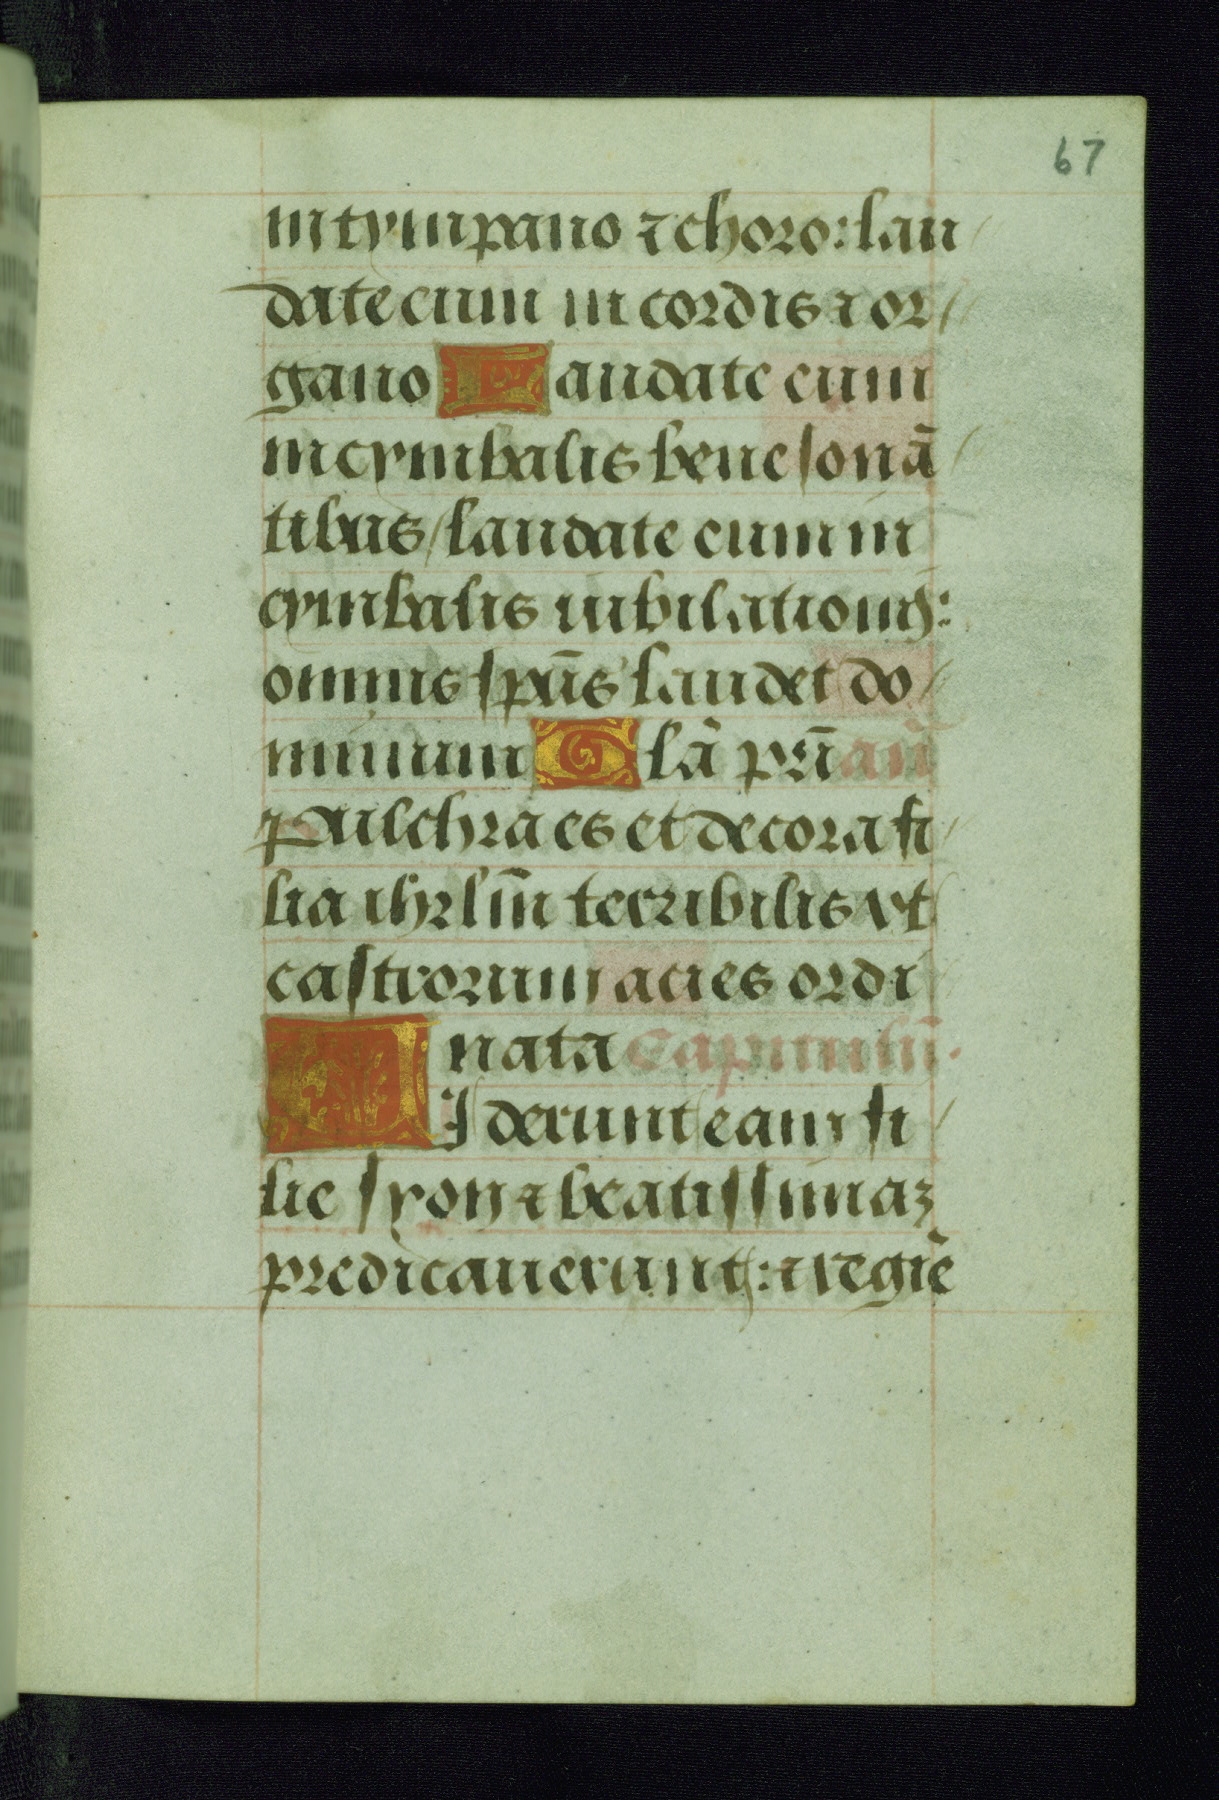 67
in tympano ⁊ choro: lau
date eum in cordis ⁊ or
gano Laudate eum
in cymbalis bene sonā
tibus / laudate eum in
cymbalis iubilationis:
omnis spūs laudet do
minum Glā pr̄i an̄
Pulchra es et decora fi
lia ihrl̄m terribilis vt
castrorum acies ordi
nata Capitulū.
Viderunt eam fi
lie syon ⁊ beatissimaꝫ
predicauerunt: ⁊ regiē